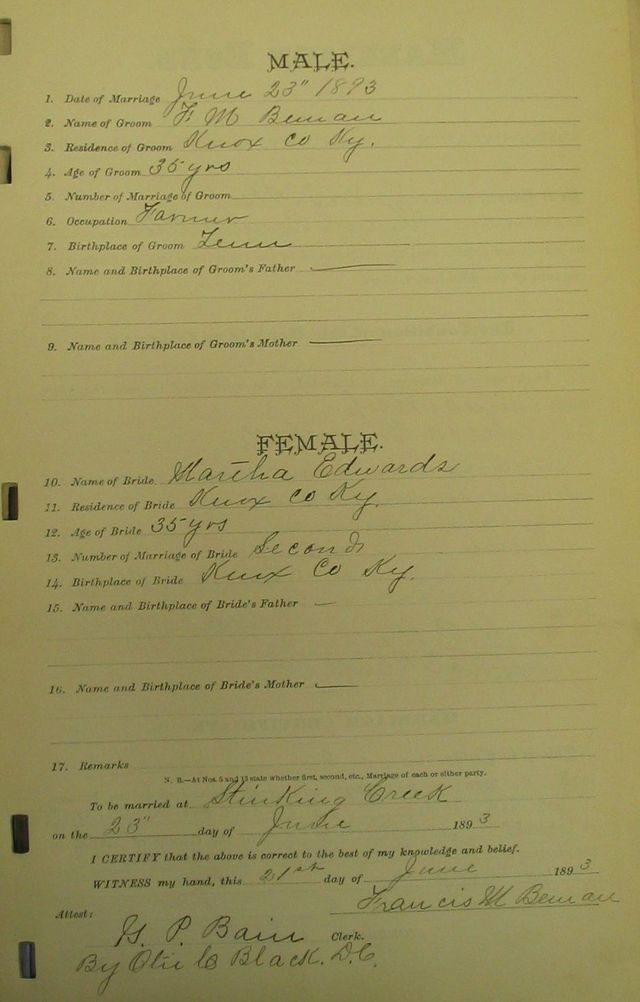 MALE.
1. Date of Marriage June 23" 1893
2. Name of Groom F. M Beman
3. Residence of Groom Knox Co Ky.
4. Age of Groom 35 yrs
5. Number of Marriage of Groom
6. Occupation Farmer
7. Birthplace of Groom Tenn
8. Name and Birthplace of Groom's Father —
9. Name and Birthplace of Groom's Mother —
FEMALE.
10. Name of Bride. Martha Edwards
11. Residence of Bride Knox Co Ky.
12. Age of Bride 35 yrs
13. Number of Marriage of Bride Second
14. Birthplace of Bride Knox Co Ky.
15. Name and Birthplace of Bride's Father —
16. Name and Birthplace of Bride's Mother —
17. Remarks
N. B.—At Nos. 5 and 13 state whether first, second, etc., Marriage of each or either party.
To be married at Stinking Creek
on the 23" day of June 1893
I CERTIFY that the above is correct to the best of my knowledge and belief.
WITNESS my hand, this 21st day of June 1893
Francis M Beman
Attest:
G. P. Bain Clerk.
By Otis C Black. D.C.